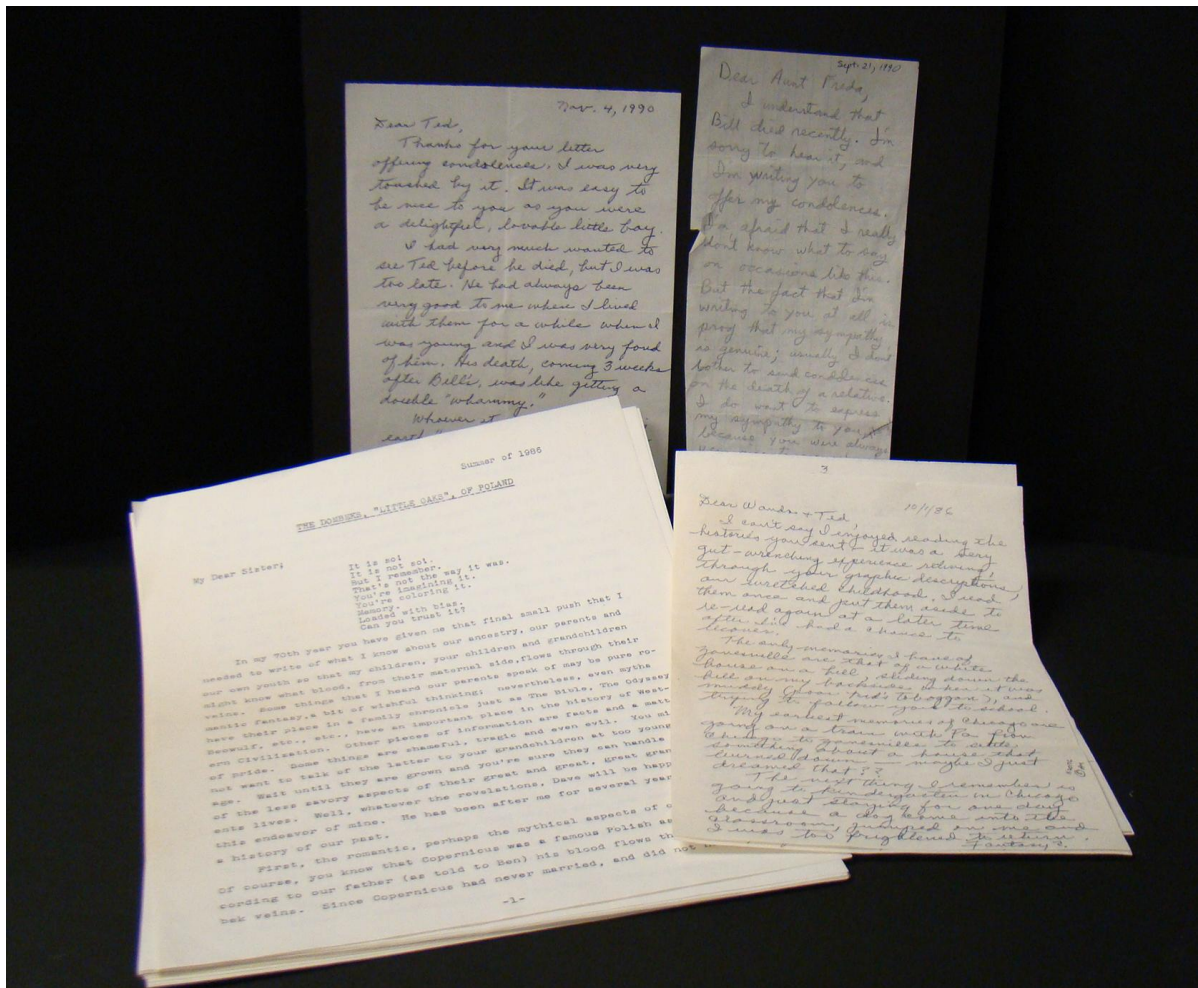 Nov. 4, 1990
Dear Ted,
Thanks for your letter
offering condolences. I was very
touched by it. It was easy to
be nice to you as you were
a delightful, lovable little boy.
I had very much wanted to
see Ted before he died, but I was
too late. He had always been
very good to me when I lived
with them for a while when I
was young and I was very fond
of him. His death, coming 3 weeks
after Bill's, was like getting a
double "whammy."
Whoever it
earth
Sept. 21, 1990
Dear Aunt Freda,
I understand that
Bill died recently. I'm
sorry to hear it, and
I'm writing you to
offer my condolences.
I'm afraid that I really
don't know what to say
on occasions like this.
But the fact that I'm
writing to you at all is
proof that my sympathy
is genuine; usually I don't
bother to send condolences
on the death of a relative.
I do want to express
my sympathy to you
because you were always
Summer of 1986
THE DOMBEKS, "LITTLE OAKS", OF POLAND
My Dear Sister;
It is so!
It is not so!.
But I remember.
That's not the way it was.
You're imagining it.
You're coloring it.
Memory.
Loaded with bias.
Can you trust it?
In my 70th year you have given me that final small push that I
needed to write of what I know about our ancestry, our parents and
our own youth so that my children, your children and grandchildren
might know what blood, from their maternal side,flows through their
veins. Some things that I heard our parents speak of may be pure ro-
mantic fantasy,a bit of wishful thinking; nevertheless, even myths
have their place in a family chronicle just as The Bible, The Odyssey
Beowulf, etc., etc., have an important place in the history of West-
ern Civilization. Other pieces of information are facts and a matt
of pride. Some things are shameful, tragic and even evil. You mi
not want to talk of the latter to your grandchildren at too young
age. Wait until they are grown and you're sure they can handle
of the less savory aspects of their great and great, great gran
ents lives. Well, whatever the revelations, Dave will be happ
this endeavor of mine. He has been after me for several year
a history of our past.
First, the romantic, perhaps the mythical aspects of o
Of course, you know that Copernicus was a famous Polish as
cording to our father (as told to Ben) his blood flows th
bek veins. Since Copernicus had never married, and did not
-1-
3
10/1/86
Dear Wanda & Ted,
I can't say I enjoyed reading the
histories you sent - it was a very
gut-wrenching experience reliving,
through your graphic descriptions,
our wretched childhood. I read
them once and put them aside to
re-read again at a later time
after I've had a chance to
The only memories I have of
Zanesville are that of a white
house on a hill, sliding down the
hill on my backside when it was
muddy (poor kid's toboggan?) and
trying to follow you to school.
My earliest memories of Chicago are
going on a train with Pa from
Chicago to Zanesville to settle
something about a house that
burned down - maybe I just
dreamed that??
The next thing I remember is
going to kindergarten in Chicago
and just staying for one day
because a dog came into the
classroom, jumped on me and
I was too frightened to return.
Fantasy?